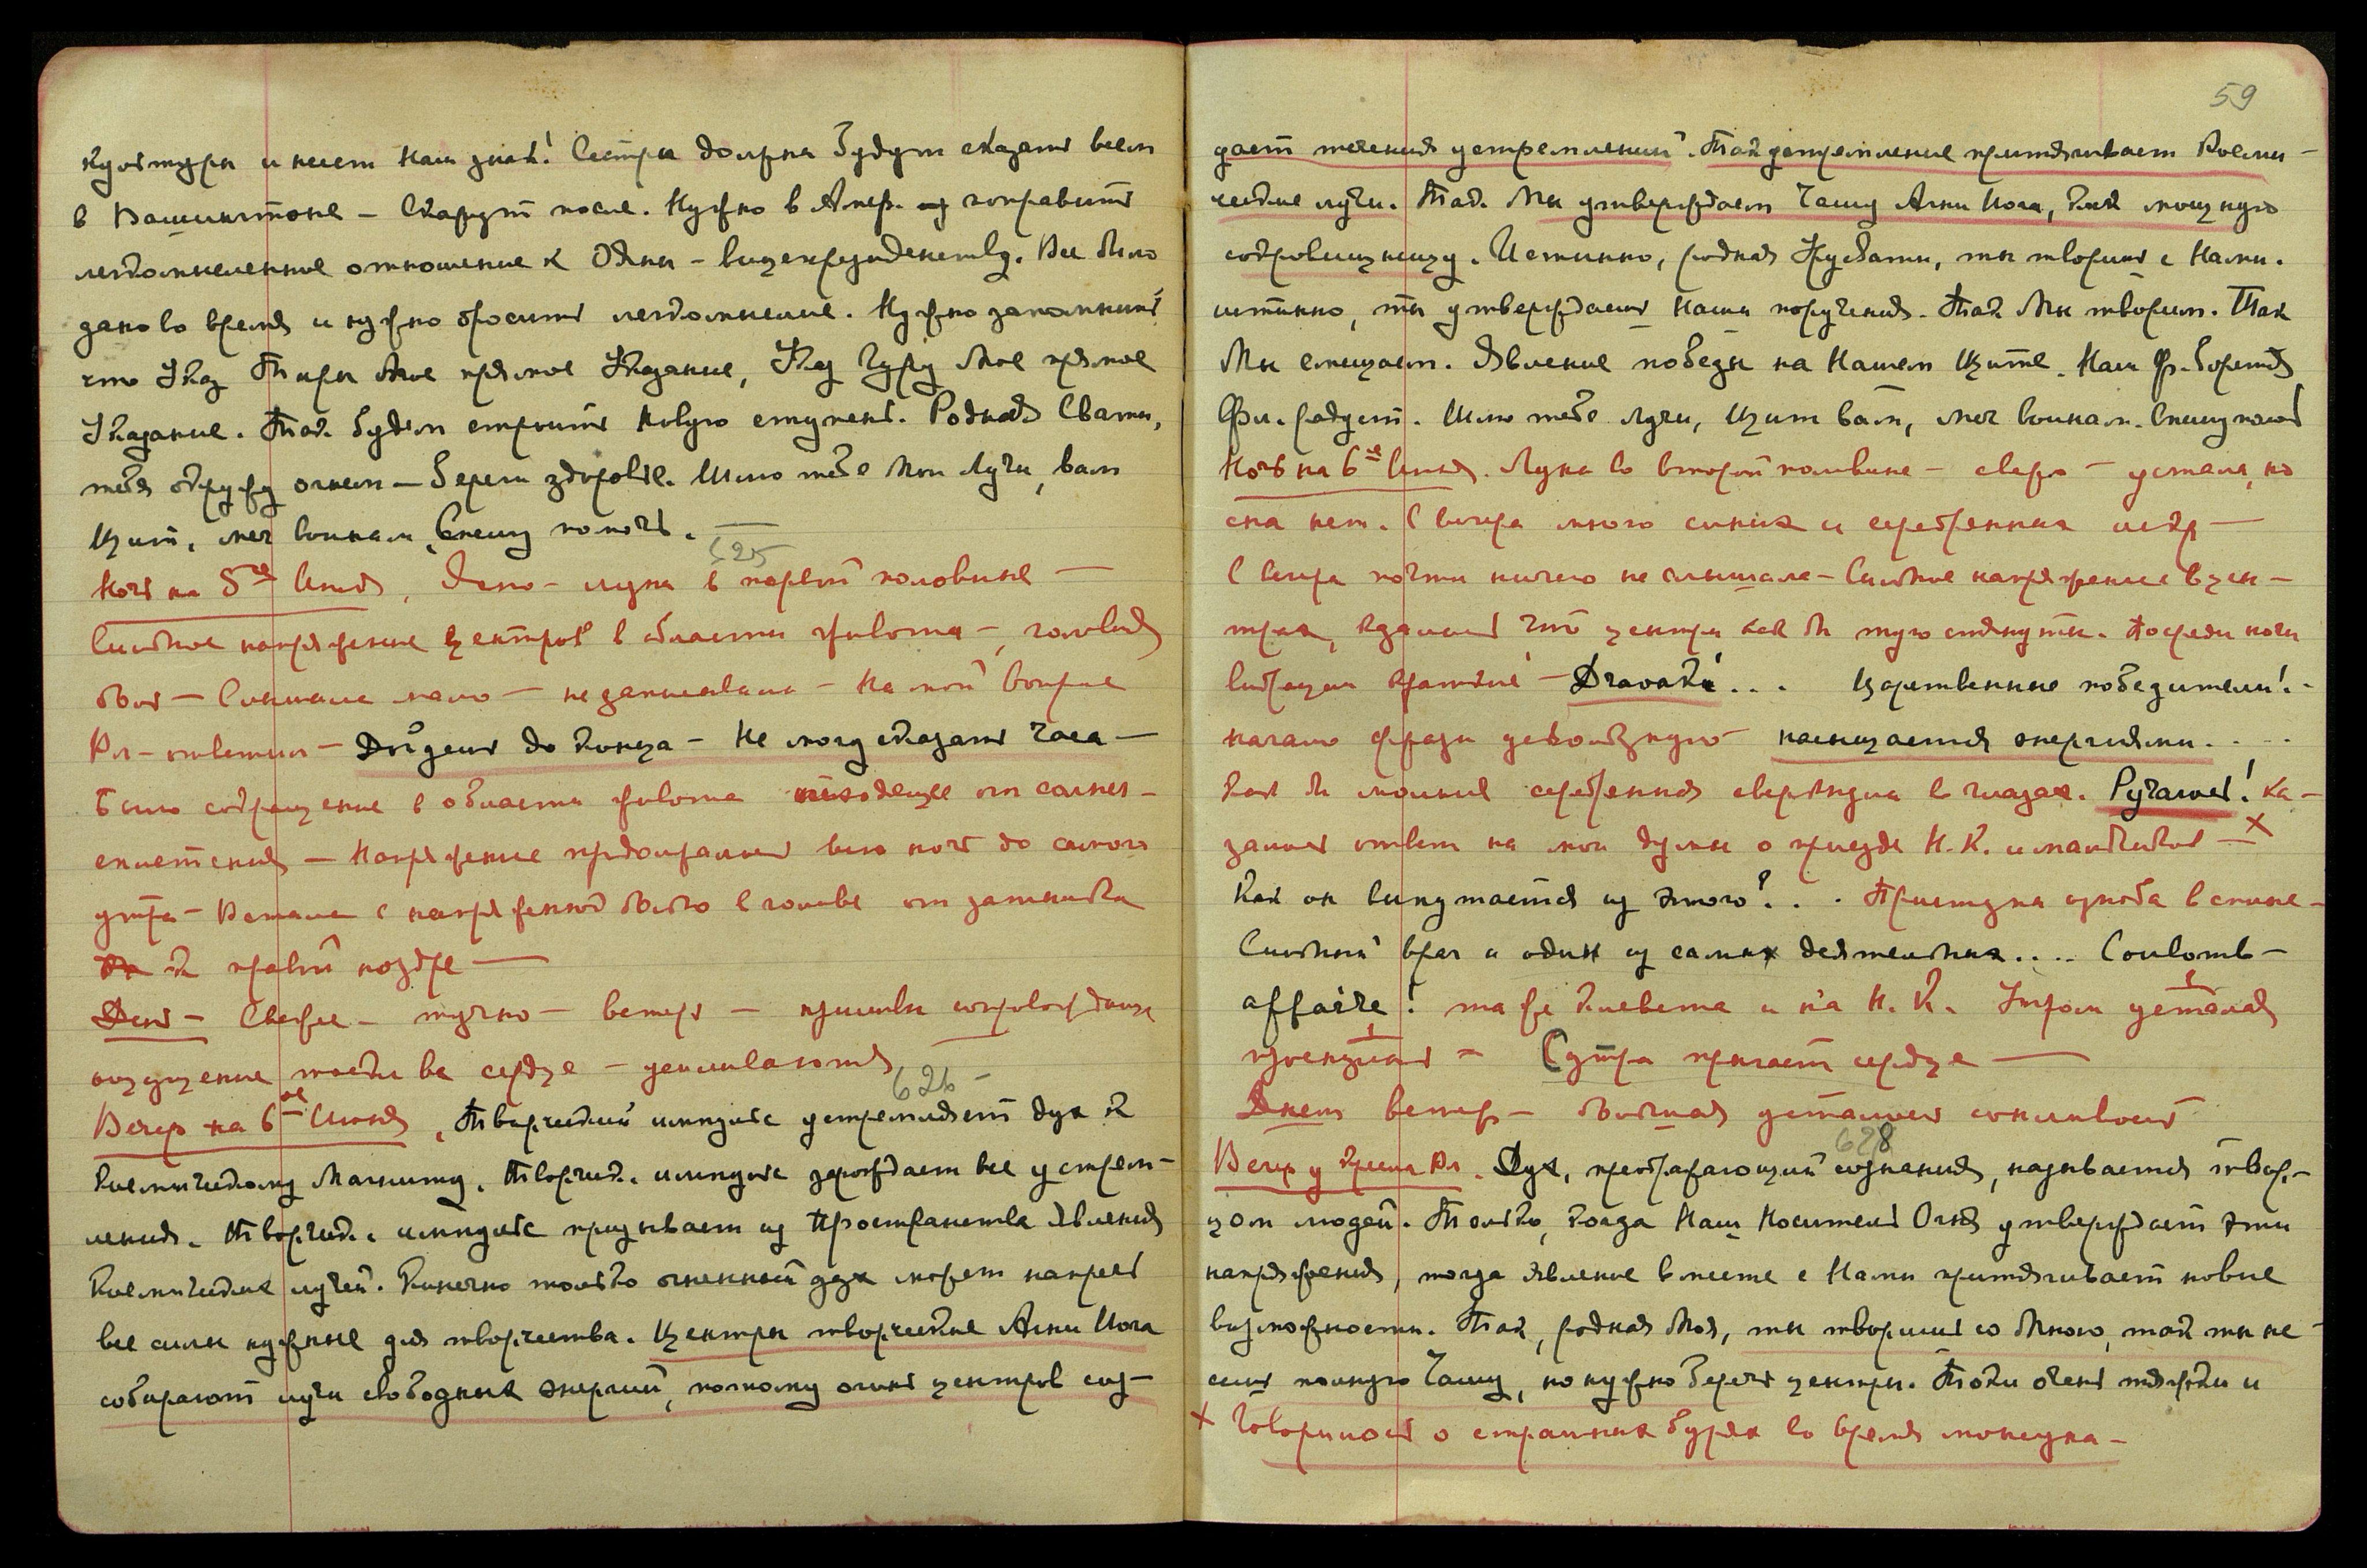 культуры и несет Наш знак! Сестры должны будут сказать всем
в Вашингтоне – скажут после. Нужно в Амер. исправить
легкомысленное отношение к Ояны – вицепрезиденству. Все было
дано во время и нужно бросить легкомыслие. Нужно запомнить
что Указ Тары Мое прямое Указание, Указ Гуру Мое прямое
Указание. Так будем строить Новую ступень. Родная Свати,
тебя окружу огнем – Береги здоровье. Шлю тебе Мои Лучи, вам
Щит, меч воинам, Спешу помочь. —
625
Ночь на 5ое Июня, Ясно – луна в первой половине —
Сильное напряжение центров в области живота –, головная
боль – Слышала мало – не записывала – На мой вопрос
Вл – ответил – Дойдешь до конца – Не могу сказать часа —
Было сокращение в области живота исходящее от солнеч-
сплетения – Напряжение продолжалось всю ночь до самого
утра – Встала с напряженной болью в голове от затылка
к правой ноздре —
День – Свежее – тучно – ветер – приливы сопровождающ
ощущение тоски в сердце – усиливаются
626 –
Вечер на 6ое Июня, Творческий импульс устремляет дух к
Космическому Магниту. Творческ. импульс зарождает все устрем-
ления. Творческ. импульс призывает из Пространства явления
Космических лучей. Конечно только огненный дух может напрячь
все силы нужные для творчества. Центры творческие Агни Йога
собирают лучи свободных энергий, потому огонь центров соз-
59
дает течения устремлений. Так устремление притягивает Косми-
ческие лучи. Так Мы утверждаем Чашу Агни Йога, как мощную
сокровищницу. Истинно, родная Урусвати, ты творишь с Нами.
истинно, ты утверждаешь Наши поручения. Так Мы творим. Так
Мы смещаем. Явление победы на Нашем Щите. Наш Ф. борется
Фл. радует. Шлю тебе Лучи, Щит вам, меч воинам. Спешу помочь
Ночь на 6ое Июня. Луна во второй половине – свежо – устала, но
сна нет. С вечера много синих и серебренных искр —
С вечера почти ничего не слышала – Сильное напряжение в цен-
трах, казалось что центры как бы туго стянуты. Посреди ночи
вибрации краткие – Dravaki ... Царственные победители! –
начало фразы ускользнуло – насыщается энергиями. . . .
как бы молния серебренная сверкнула в глазах. Ручаюсь! Ка-
залось ответ на мои думы о приезде Н.К. и мальчиков – x
Как он выкутается из этого? . . . Приступы озноба в спине –
Сильный враг и один из самых деятельных .... Coulomb –
affaire! та же клевета и на Н. К. Утром усталая
проснулась – С утра прыгает сердце —
Днем ветер – большая усталость сонливость
628
Вечер у кресла Вл. Дух, преображающий сознания, называется твор-
цом людей. Только, когда Наш Носитель Огня утверждает эти
напряжения, тогда явление вместе с Нами притягивает новые
возможности. Так, родная Моя, ты творишь со Мною, так ты не-
сешь полную Чашу, но нужно беречь центры. Токи очень тяжки и
x Говорилось о страшных бурях во время монсуна –